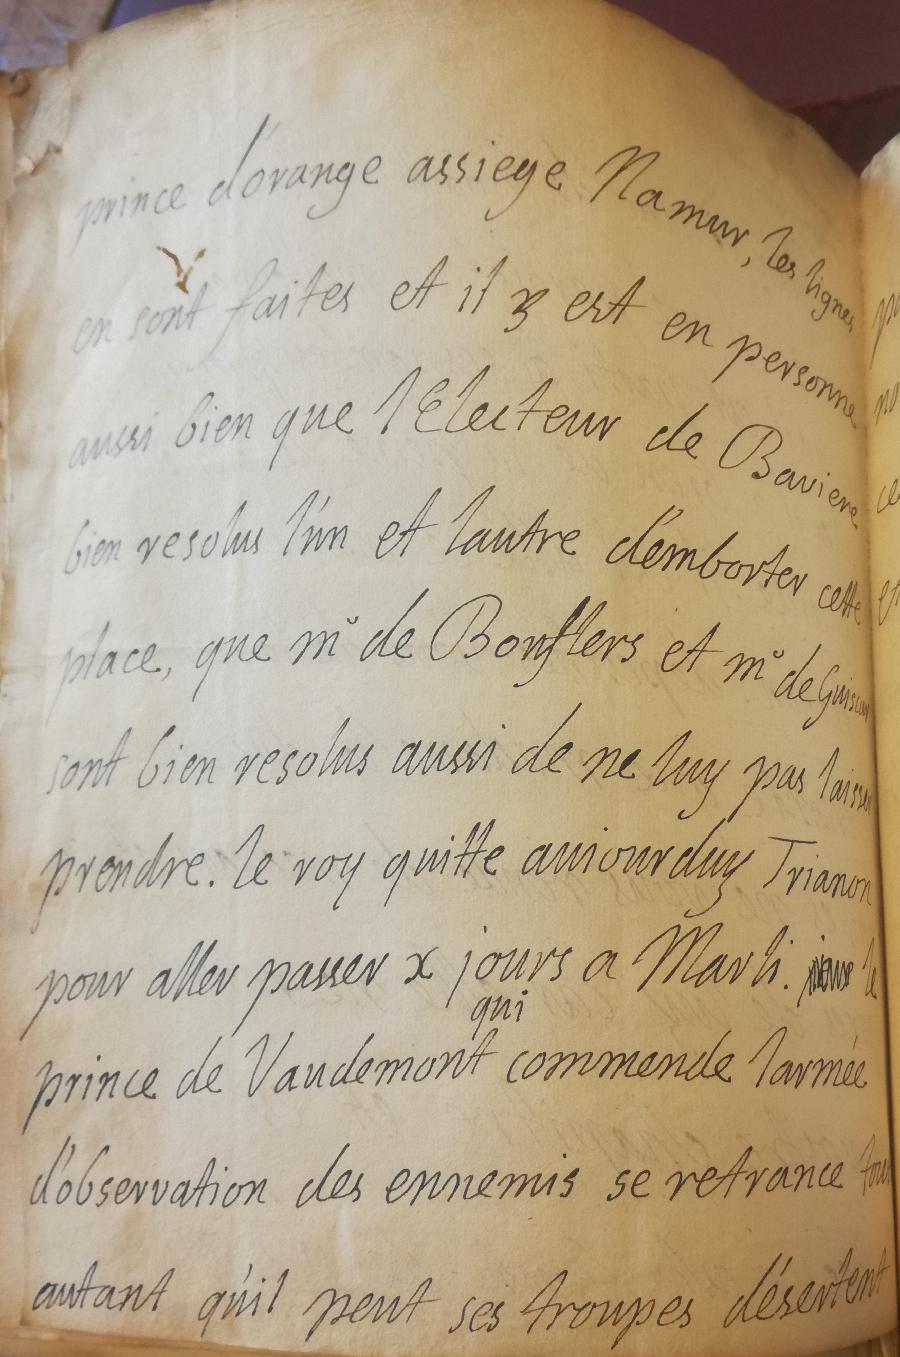 prince d'orange assiege Namur, les lignes
en sont faites et il y est en personne
aussi bien que l'Electeur de Baviere
bien resolus l'un et lautre d'emborter cette
place, que mr de Bouflers et mr de Guiscar
sont bien resolus aussi de ne luy pas laisser
prendre. le roy quitte auiourduy Trianon
pour aller passer x jours a Marli. le
qui
prince de Vaudemont commende larmée
d'observation des ennemis se retrance tout
autant qu'il peut ses troupes désertent